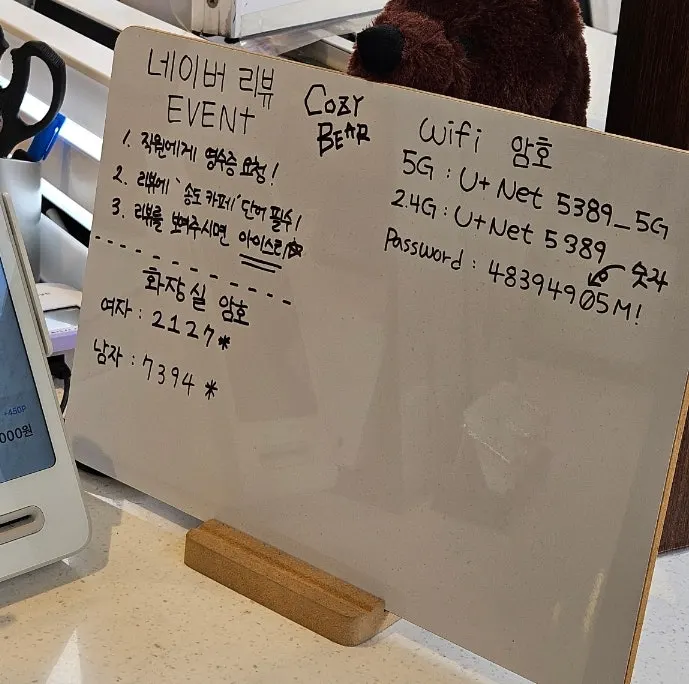 네이버 리뷰
EVENT
1. 직원에게 영수증 요청!
2. 리뷰에 '송도 카페' 단어 필수!
3. 리뷰를 보여주시면
화장실 암호
여자 : 2127*
남자 : 7394*
COZY
BEAR
Wifi 암호
5G : U+Net 5389_5G
2.4G : U+Net 5389
숫자
Password : 48394905M!
+450P
000원